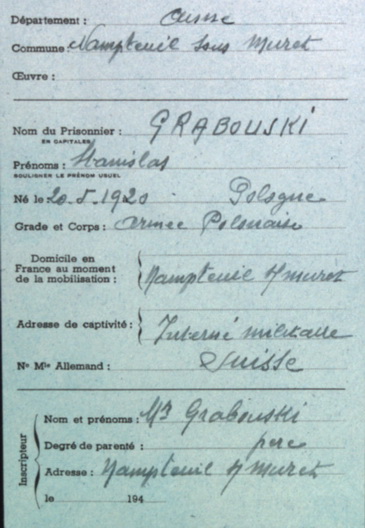 Département : Aisne
Commune : Nampteuil sous Muret
Œuvre :
Nom du Prisonnier : GRABOUSKI
EN CAPITALES
Prénoms : Stanislas
SOULIGNER LE PRÉNOM USUEL
Né le : 20-5-1920 Pologne
Grade et Corps : Armée Polonaise
Domicile en
France au moment
de la mobilisation : Nampteuil s/ muret
Adresse de captivité : Interné militaire
N° Mle Allemand : Suisse
Inscripteur
Nom et prénoms : Mr Grabouski
Degré de parenté : pere
Adresse : Nampteuil s/ muret
le 194